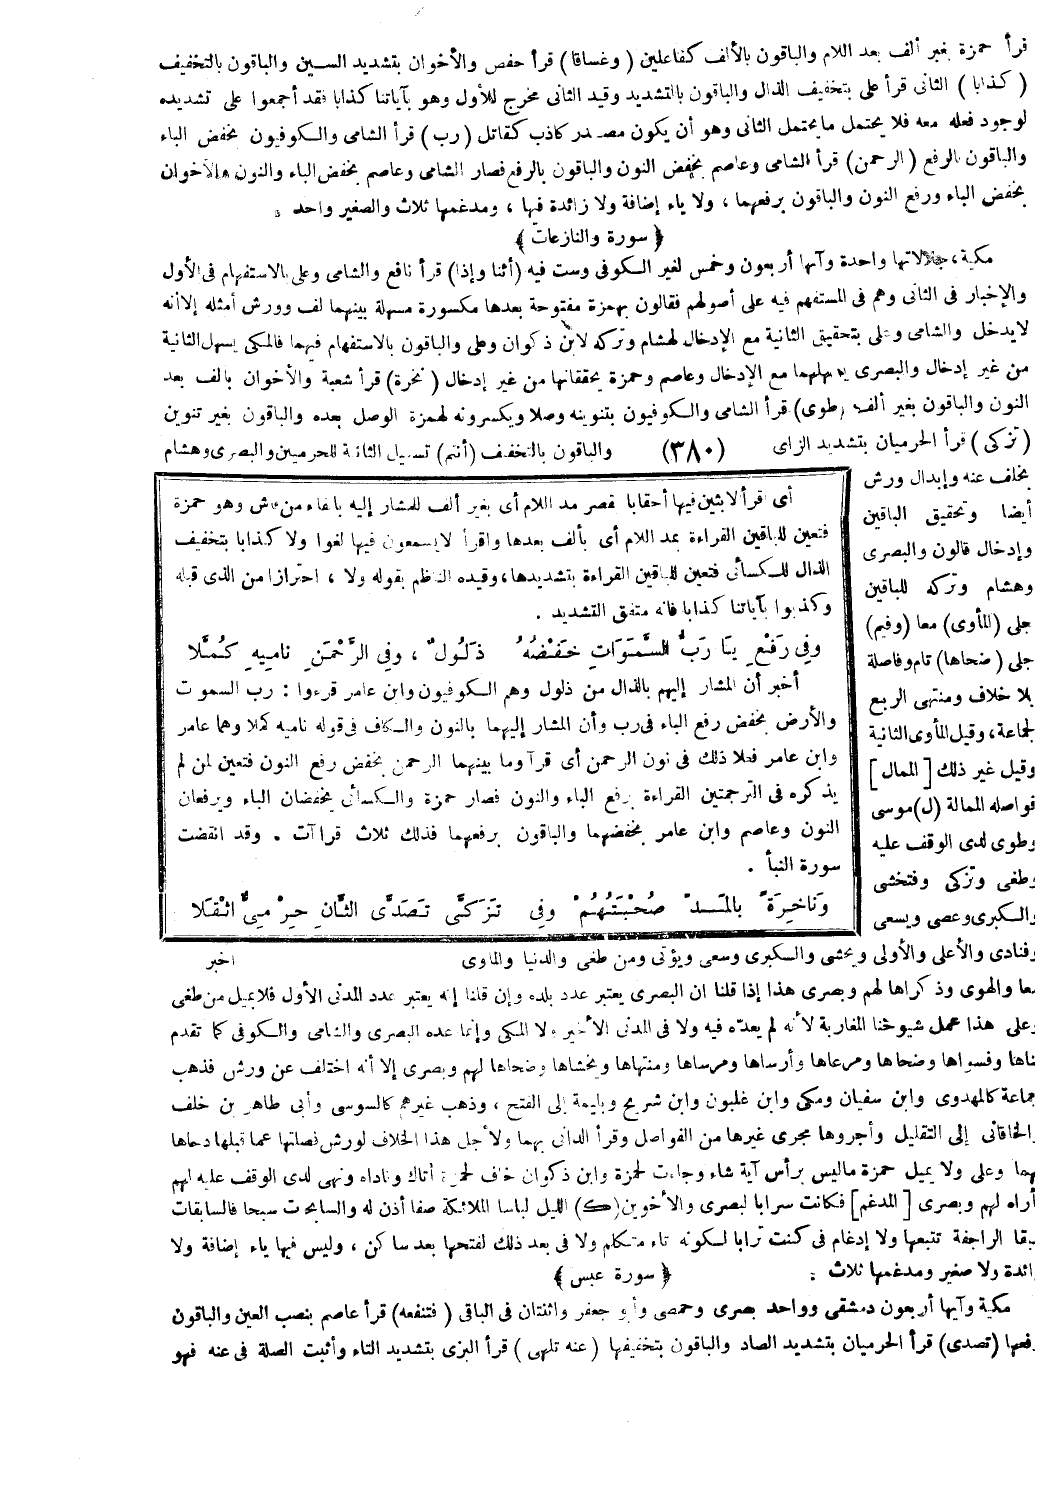 قرأ حمزة بغير ألف بعد اللام والباقون بالألف كفاعلين (وغساقا) قرأ حفص والأخوان بتشديد السين والباقون بالتخفيف
(كذابا) الثانى قرأ على بتخفيف الذال والباقون بالتشديد وقيد الثانى مخرج للأول وهو بآياتنا كذابا فقد أجمعوا على تشديده
لوجود فعله معه فلا يحتمل ما يحتمل الثانى وهو أن يكون مصدر كاذب كقاتل (رب) قرأ الشامى والكوفيون بخفض الباء
والباقون بالرفع (الرحمن) قرأ الشامى وعاصم بخفض النون والباقون بالرفع فصار الشامى وعاصم بخفض الباء والنون والأخوان
بخفض الباء ورفع النون والباقون برفعهما ، ولا ياء إضافة ولا زائدة فيها ، ومدغمها ثلاث والصغير واحد .
﴿ سورة والنازعات ﴾
مكية ، جلالاتها واحدة وآيها أربعون وخمس لغير الكوفى وست فيه (أئنا وإذا) قرأ نافع والشامى وعلى بالاستفهام فى الأول
والإخبار فى الثانى وهم فى المستفهم فيه على أصولهم فقالون بهمزة مفتوحة بعدها مكسورة مسهلة بينهما لف وورش أمثله إلا أنه
لا يدخل والشامى وعلى بتحقيق الثانية مع الإدخال لهشام وتركه لابن ذكوان وعلى والباقون بالاستفهام فيهما فالمكى يسهل الثانية
من غير إدخال والبصرى يسهلهما مع الإدخال وعاصم وحمزة يحققانها من غير إدخال (نخرة) قرأ شعبة والأخوان بالف بعد
النون والباقون بغير ألف (طوى) قرأ الشامى والكوفيون بتنوينه وصلا ويكسرونه لهمزة الوصل بعده والباقون بغير تنوين
(تزكى) قرأ الحرميان بتشديد الزاى (٣٨٠) والباقون بالتخفيف (أنتم) تسهيل الثانية للحرميين والبصرى وهشام
بخلف عنه وإبدال ورش
أيضا وتحقيق الباقين
وإدخال قالون والبصرى
وهشام وتركه للباقين
جلى (المأوى) معا (وفيم)
جلى (ضحاها) تام وفاصلة
بلا خلاف ومنتهى الربع
لجماعة ، وقيل المأوى الثانية
وقيل غير ذلك [الممال]
فواصله الممالة (ل) موسى
وطوى لدى الوقف عليه
وطغى وتزكى وفتخشى
والكبرى وعصى ويسعى
أى قرأ لابثين فيها أحقابا بقصر مد اللام أى بغير ألف للمشار إليه بالفاء من فاش وهو حمزة
فتعين للباقين القراءة بمد اللام أى بألف بعدها واقرأ لا يسمعون فيها لغوا ولا كذابا بتخفيف
الذال للكسائى فتعين للباقين القراءة بتشديدها ، وقيده الناظم بقوله ولا ، احترازا من الذى قبله
وكذبوا بآياتنا كذابا فانه متفق التشديد .
وَفِي رَفْعِ بَا رَبُّ السَّمَوَاتِ خَفْضُهُ ذَلُولٌ ، وَفِي الرَّحْمَنِ نَامِيهِ كَمَّلَا
أخبر أن المشار إليهم بالذال من ذلول وهم الكوفيون وابن عامر قرءوا : رب السموت
والأرض بخفض رفع الباء فى رب وأن المشار إليهما بالنون والكاف فى قوله ناميه كملا وهما عامر
وابن عامر فعلا ذلك فى نون الرحمن أى قرآ وما بينهما الرحمن بخفض رفع النون فتعين لمن لم
يذكره فى الترجمتين القراءة برفع الباء والنون فصار حمزة والكسائى يخفضان الباء ويرفعان
النون وعاصم وابن عامر بخفضهما والباقون برفعهما فذلك ثلاث قراآت . وقد انقضت
سورة النبأ .
وَنَاخِرَةً بِالْمَدِّ صُحْبَتُهُمْ وَفِي تَزَكَّى تَصَدَّى الثَّانِ حِرْمِيٌّ اثْقَلَا
وفنادى والأعلى والأولى ويخشى والكبرى وسعى ويؤتى ومن طغى والدنيا والمأوى اخبر
معا والهوى وذكراها لهم وبصرى هذا إذا قلنا ان البصرى يعتبر عدد بلده وإن قلنا إنه يعتبر عدد المدنى الأول فلا يميل من طغى
وعلى هذا عمل شيوخنا المغاربة لأنه لم يعده فيه ولا فى المدنى الأخير ولا المكى وإنما عده البصرى والشامى والكوفى كما تقدم
بناها وفسواها وضحاها ومرعاها وأرساها ومرساها ومنتهاها ويخشاها وضحاها لهم وبصرى إلا أنه اختلف عن ورش فذهب
جماعة كالمهدوى وابن سفيان ومكى وابن غلبون وابن شريح وبليمة إلى الفتح ، وذهب غيرهم كالسوسى وأبى طاهر بن خلف
والخاقانى إلى التقليل وأجروها مجرى غيرها من الفواصل وقرأ الدانى بهما ولأجل هذا الخلاف لورش فصلتها عما قبلها دحاها
لهما وعلى ولا يميل حمزة ماليس برأس آية شاء وجاءت لحمزة وابن ذكوان خاف لحمزة أتاك وناداه ونهى لدى الوقف عليه لهم
فأراه لهم وبصرى [المدغم] فكانت سرابا لبصرى والأخوين (ك) الليل لباسا الملائكة صفا أذن له والسابحات سبحا فالسابقات
سبقا الراجفة تتبعها ولا إدغام فى كنت ترابا لكونه تاء متكلم ولا فى بعد ذلك لفتحها بعد ساكن ، وليس فيها ياء إضافة ولا
زائدة ولا صغير ومدغمها ثلاث :
﴿ سورة عبس ﴾
مكية وآيها أربعون دمشقى وواحد بصرى وحمصى وأبو جعفر واثنتان فى الباقى (فتنفعه) قرأ عاصم بنصب العين والباقون
برفعها (تصدى) قرأ الحرميان بتشديد الصاد والباقون بتخفيفها (عنه تلهى) قرأ البزى بتشديد التاء وأثبت الصلة فى عنه فهو